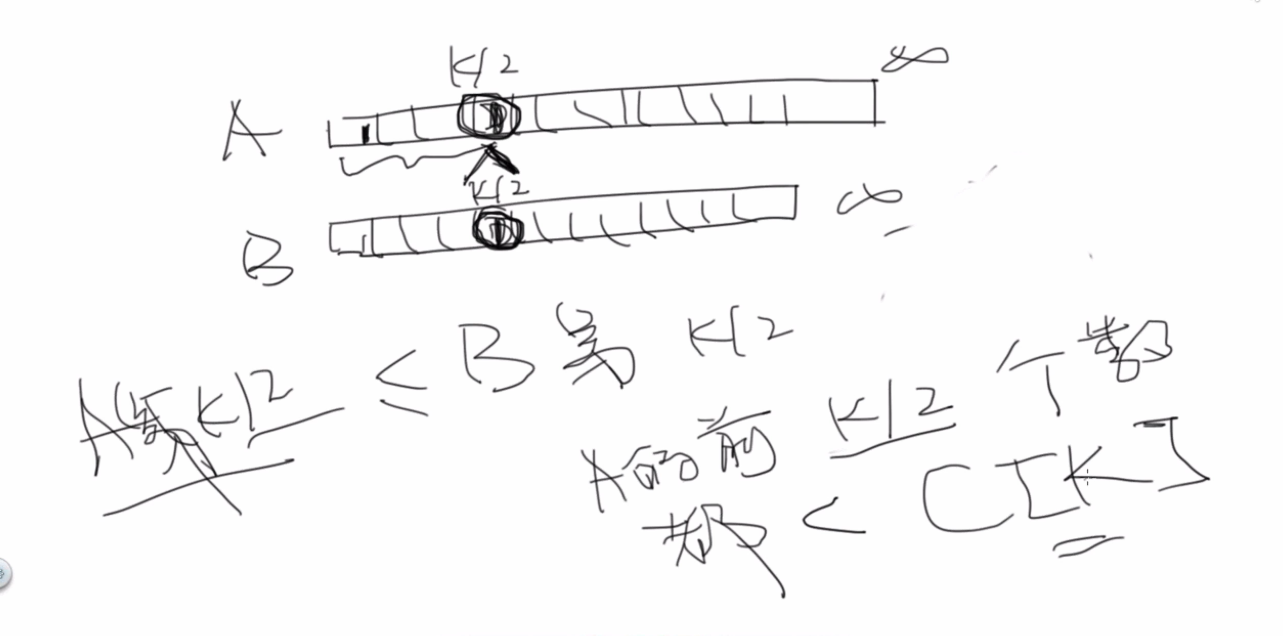 K/2
∞
A
K/2
∞
B
A第K/2 ≤ B第 K/2
A的前 K/2 个数
都 < C[K]